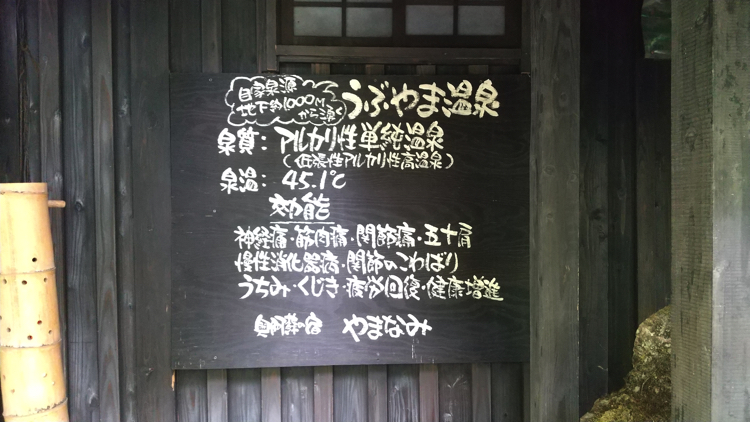 自家泉源
地下約1000M
から湧く
うぶやま温泉
泉質: アルカリ性単純温泉
(低張性アルカリ性高温泉)
泉温: 45.1℃
効能
神経痛・筋肉痛・関節痛・五十肩
慢性消化器病・関節のこわばり
うちみ・くじき・疲労回復・健康増進
奥阿蘇の宿 やまなみ